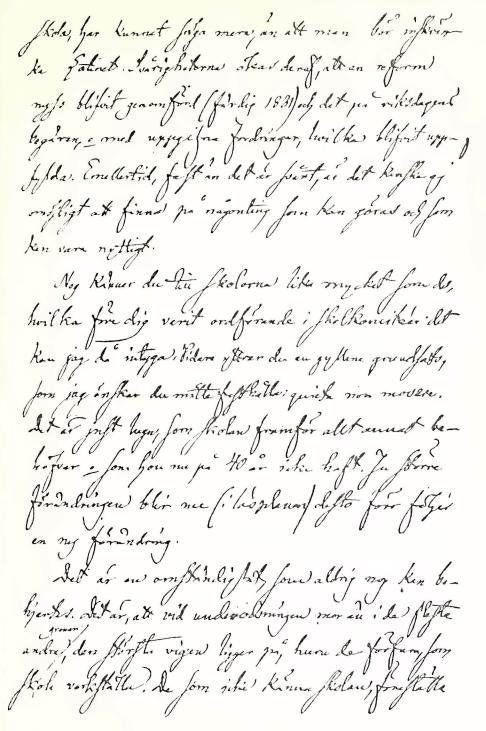 skola, har kunnat säga mera, än att man bör inskrän-
ka latinet. Svårigheterna ökas deraf, att en reform
nyss blifvit genomförd (färdig 1881) och det på riksdagens
begäran, o med uppgifna fordringar, hvilka blifvit upp-
fyllda. Emellertid, fast än det är svårt, är det kanske ej
omöjligt att finna på någonting som kan göras och som
kan vara nyttigt.
Nog känner du till skolorna lika mycket som de,
hvilka före dig varit ordförande i skolkomitéer: det
kan jag då intyga. Vidare yttrar du en gyllene grundsats,
som jag önskar du måtte fasthålla: quieta non movere.
Det är just lugn, som skolan framför allt annat be-
höfver o som hon nu på 40 år icke haft. Ju större
förändringen blir nu (i läsplanen) desto förr följer
en ny förändring.
Det är en omständighet, som aldrig nog kan be-
hjertas. Det är, att vid undervisningen mer än i de flesta
andra grenar, den största vigten ligger på, huru de förfara, som
sköta verkställa. De som icke känna skolan, föreställa